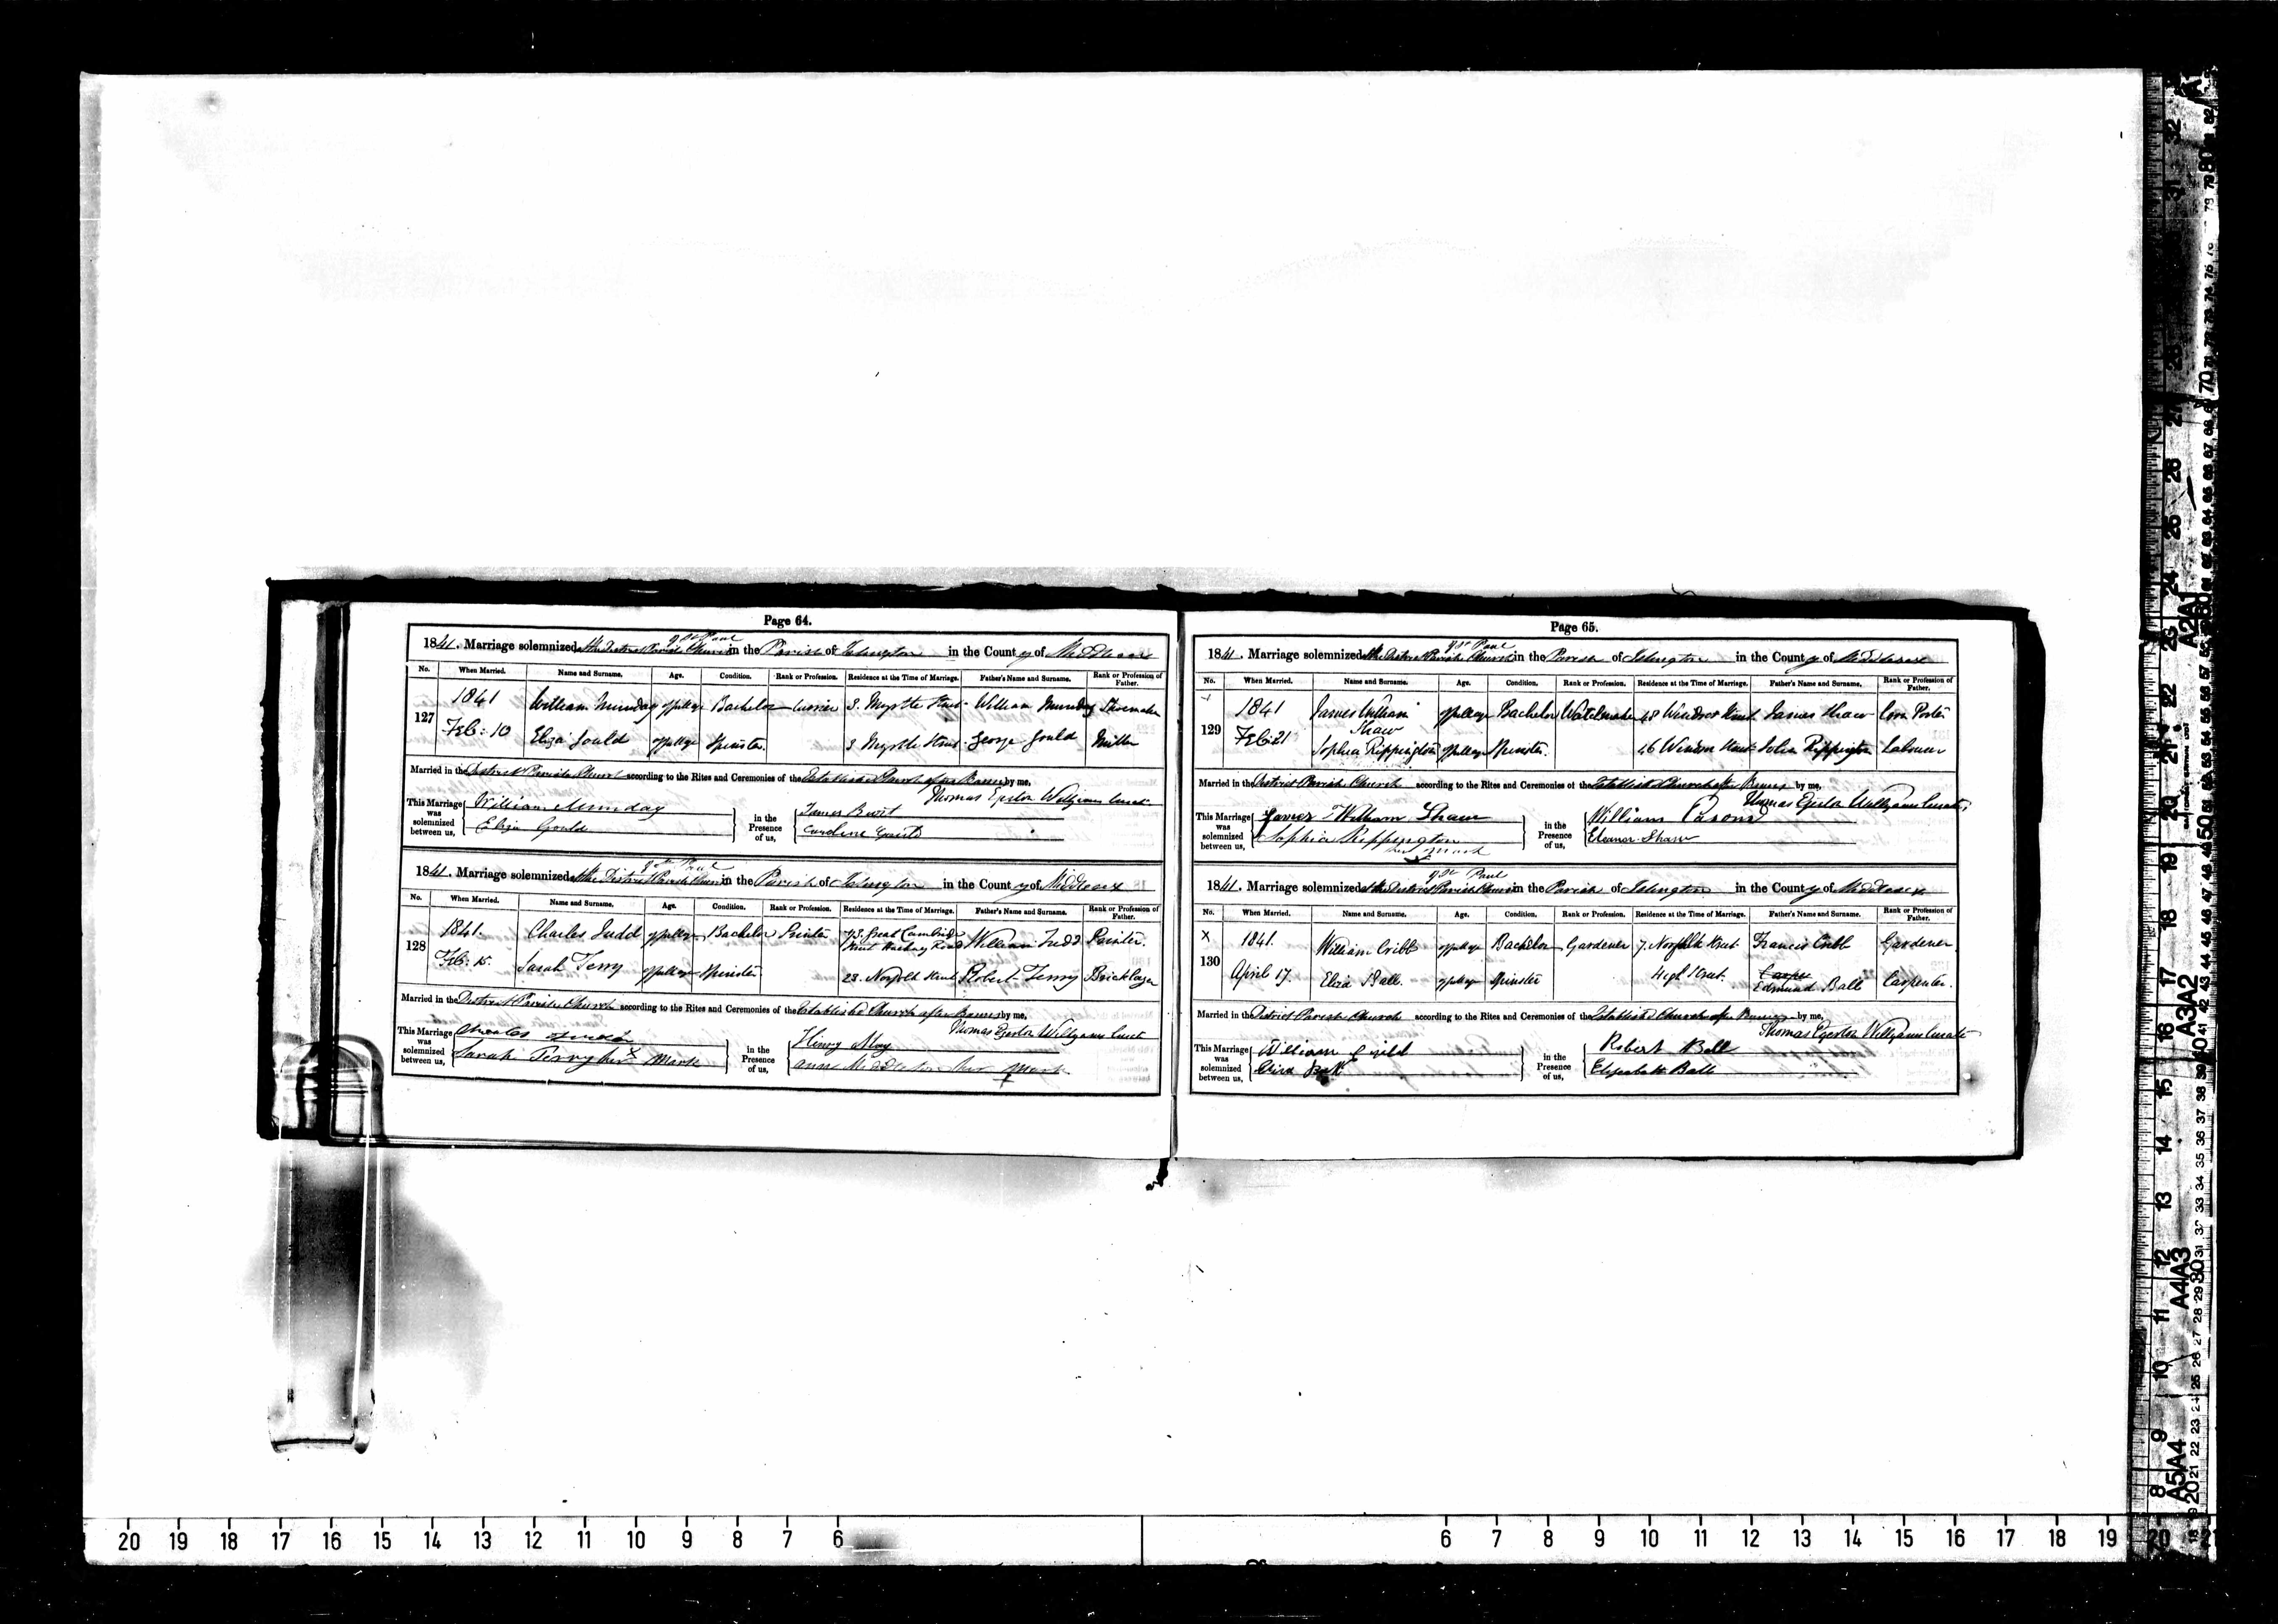 Page 64.
1841. Marriage solemnized at the District Parish Church of St Paul in the Parish of Islington in the County of Middlesex
No. When Married. Name and Surname. Age. Condition. Rank or Profession. Residence at the Time of Marriage. Father's Name and Surname. Rank or Profession of Father.
127 1841 Feb: 10 William Munday of full age Bachelor Currier 3. Myrtle Street William Munday Shoemaker
Eliza Gould of full age Spinster. 3 Myrtle Street George Gould Miller
Married in the District Parish Church according to the Rites and Ceremonies of the Established Church after Banns by me,
Thomas Egerton Curate
This Marriage was solemnized between us, William Munday Eliza Gould in the Presence of us, James Caroline
1841. Marriage solemnized at the District Parish Church of St Paul in the Parish of Islington in the County of Middlesex
No. When Married. Name and Surname. Age. Condition. Rank or Profession. Residence at the Time of Marriage. Father's Name and Surname. Rank or Profession of Father.
128 1841. Feb: 15. Charles Judd of full age Bachelor Great Cambridge Street Hackney Road William Judd Painter.
Sarah Terry of full age Spinster 23. Norfolk Street Robert Terry Bricklayer
Married in the District Parish Church according to the Rites and Ceremonies of the Established Church after Banns by me,
Thomas Egerton Curate
This Marriage was solemnized between us, Charles Judd Sarah Terry her X Mark in the Presence of us, Henry May Ann Middleton her X Mark
Page 65.
1841. Marriage solemnized at the District Parish Church of St Paul in the Parish of Islington in the County of Middlesex
No. When Married. Name and Surname. Age. Condition. Rank or Profession. Residence at the Time of Marriage. Father's Name and Surname. Rank or Profession of Father.
129 1841 Feb: 21 James William Shaw of full age Bachelor Watchmaker 48 Windsor Street James Shaw Corn Porter
Sophia Rippington of full age Spinster. 46 Windsor Street John Rippington Labourer
Married in the District Parish Church according to the Rites and Ceremonies of the Established Church after Banns by me,
Thomas Egerton Curate
This Marriage was solemnized between us, James William Shaw Sophia Rippington her X mark in the Presence of us, William Eleanor Shaw
1841. Marriage solemnized at the District Parish Church of St Paul in the Parish of Islington in the County of Middlesex
No. When Married. Name and Surname. Age. Condition. Rank or Profession. Residence at the Time of Marriage. Father's Name and Surname. Rank or Profession of Father.
X
130 1841. April 17. William Cribb of full age Bachelor Gardener 7. Norfolk Street Francis Cribb Gardener
Eliza Ball. of full age Spinster Street. Edmund Ball Carpenter.
Married in the District Parish Church according to the Rites and Ceremonies of the Established Church after Banns by me,
Thomas Egerton Curate
This Marriage was solemnized between us, William Eliza Ball in the Presence of us, Robert Ball Elizabeth Ball
20 19 18 17 16 15 14 13 12 11 10 9 8 7 6 6 7 8 9 10 11 12 13 14 15 16 17 18 19 20
A2 A1
A3 A2
A4 A3
A5 A4